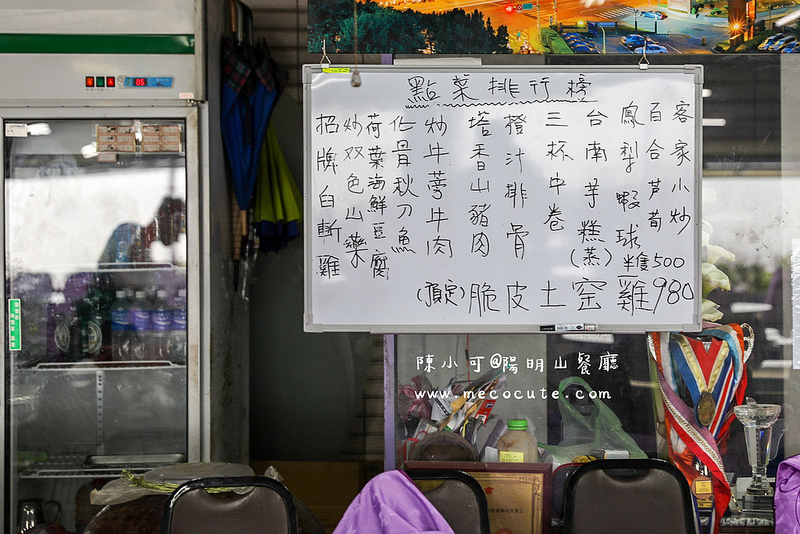 點菜排行榜
客家小炒
百合芦荀
鳳梨蝦球
台南芋糕(蒸)
三杯中卷
橙汁排骨
塔香山豬肉
炒牛蒡牛肉
化骨秋刀魚
荷葉海鮮豆腐
炒双色山藥
招牌白斬雞
半隻500
(預定)脆皮土窑雞980
陳小可@陽明山餐廳
www.mecocute.com